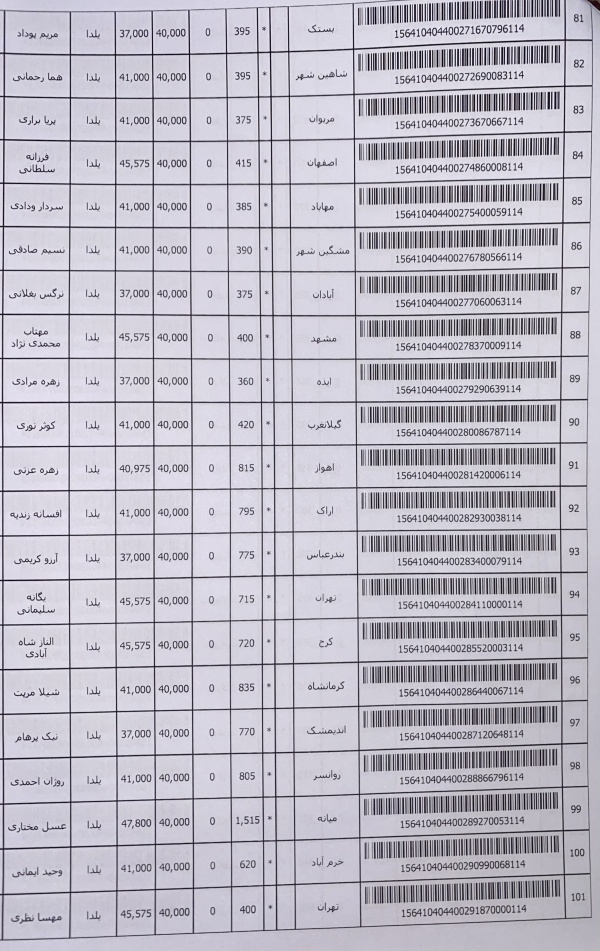 81 156410404400271670796114 بستک * 395 0 40,000 37,000 یلدا مریم پوداد
82 156410404400272690083114 شاهین شهر * 395 0 40,000 41,000 یلدا هما رحمانی
83 156410404400273670667114 مریوان * 375 0 40,000 41,000 یلدا پریا براری
84 156410404400274860008114 اصفهان * 415 0 40,000 45,575 یلدا فرزانه سلطانی
85 156410404400275400059114 مهاباد * 385 0 40,000 41,000 یلدا سردار ودادی
86 156410404400276780566114 مشگین شهر * 390 0 40,000 41,000 یلدا نسیم صادقی
87 156410404400277060063114 آبادان * 375 0 40,000 37,000 یلدا نرگس بغلانی
88 156410404400278370009114 مشهد * 400 0 40,000 45,575 یلدا مهتاب محمدی نژاد
89 156410404400279290639114 ایذه * 360 0 40,000 37,000 یلدا زهره مرادی
90 156410404400280086787114 گیلانغرب * 420 0 40,000 41,000 یلدا کوثر نوری
91 156410404400281420006114 اهواز * 815 0 40,000 40,975 یلدا زهره عزتی
92 156410404400282930038114 اراک * 795 0 40,000 41,000 یلدا افسانه زندیه
93 156410404400283400079114 بندرعباس * 775 0 40,000 37,000 یلدا آرزو کریمی
94 156410404400284110000114 تهران * 715 0 40,000 45,575 یلدا یگانه سلیمانی
95 156410404400285520003114 کرج * 720 0 40,000 45,575 یلدا الناز شاه آبادی
96 156410404400286440067114 کرمانشاه * 835 0 40,000 41,000 یلدا شیلا مریت
97 156410404400287120648114 اندیمشک * 770 0 40,000 37,000 یلدا نیک پرهام
98 156410404400288866796114 روانسر * 805 0 40,000 41,000 یلدا روژان احمدی
99 156410404400289270053114 میانه * 1,515 0 40,000 47,800 یلدا عسل مختاری
100 156410404400290990068114 خرم آباد * 620 0 40,000 41,000 یلدا وحید ایمانی
101 156410404400291870000114 تهران * 400 0 40,000 45,575 یلدا مهسا نظری